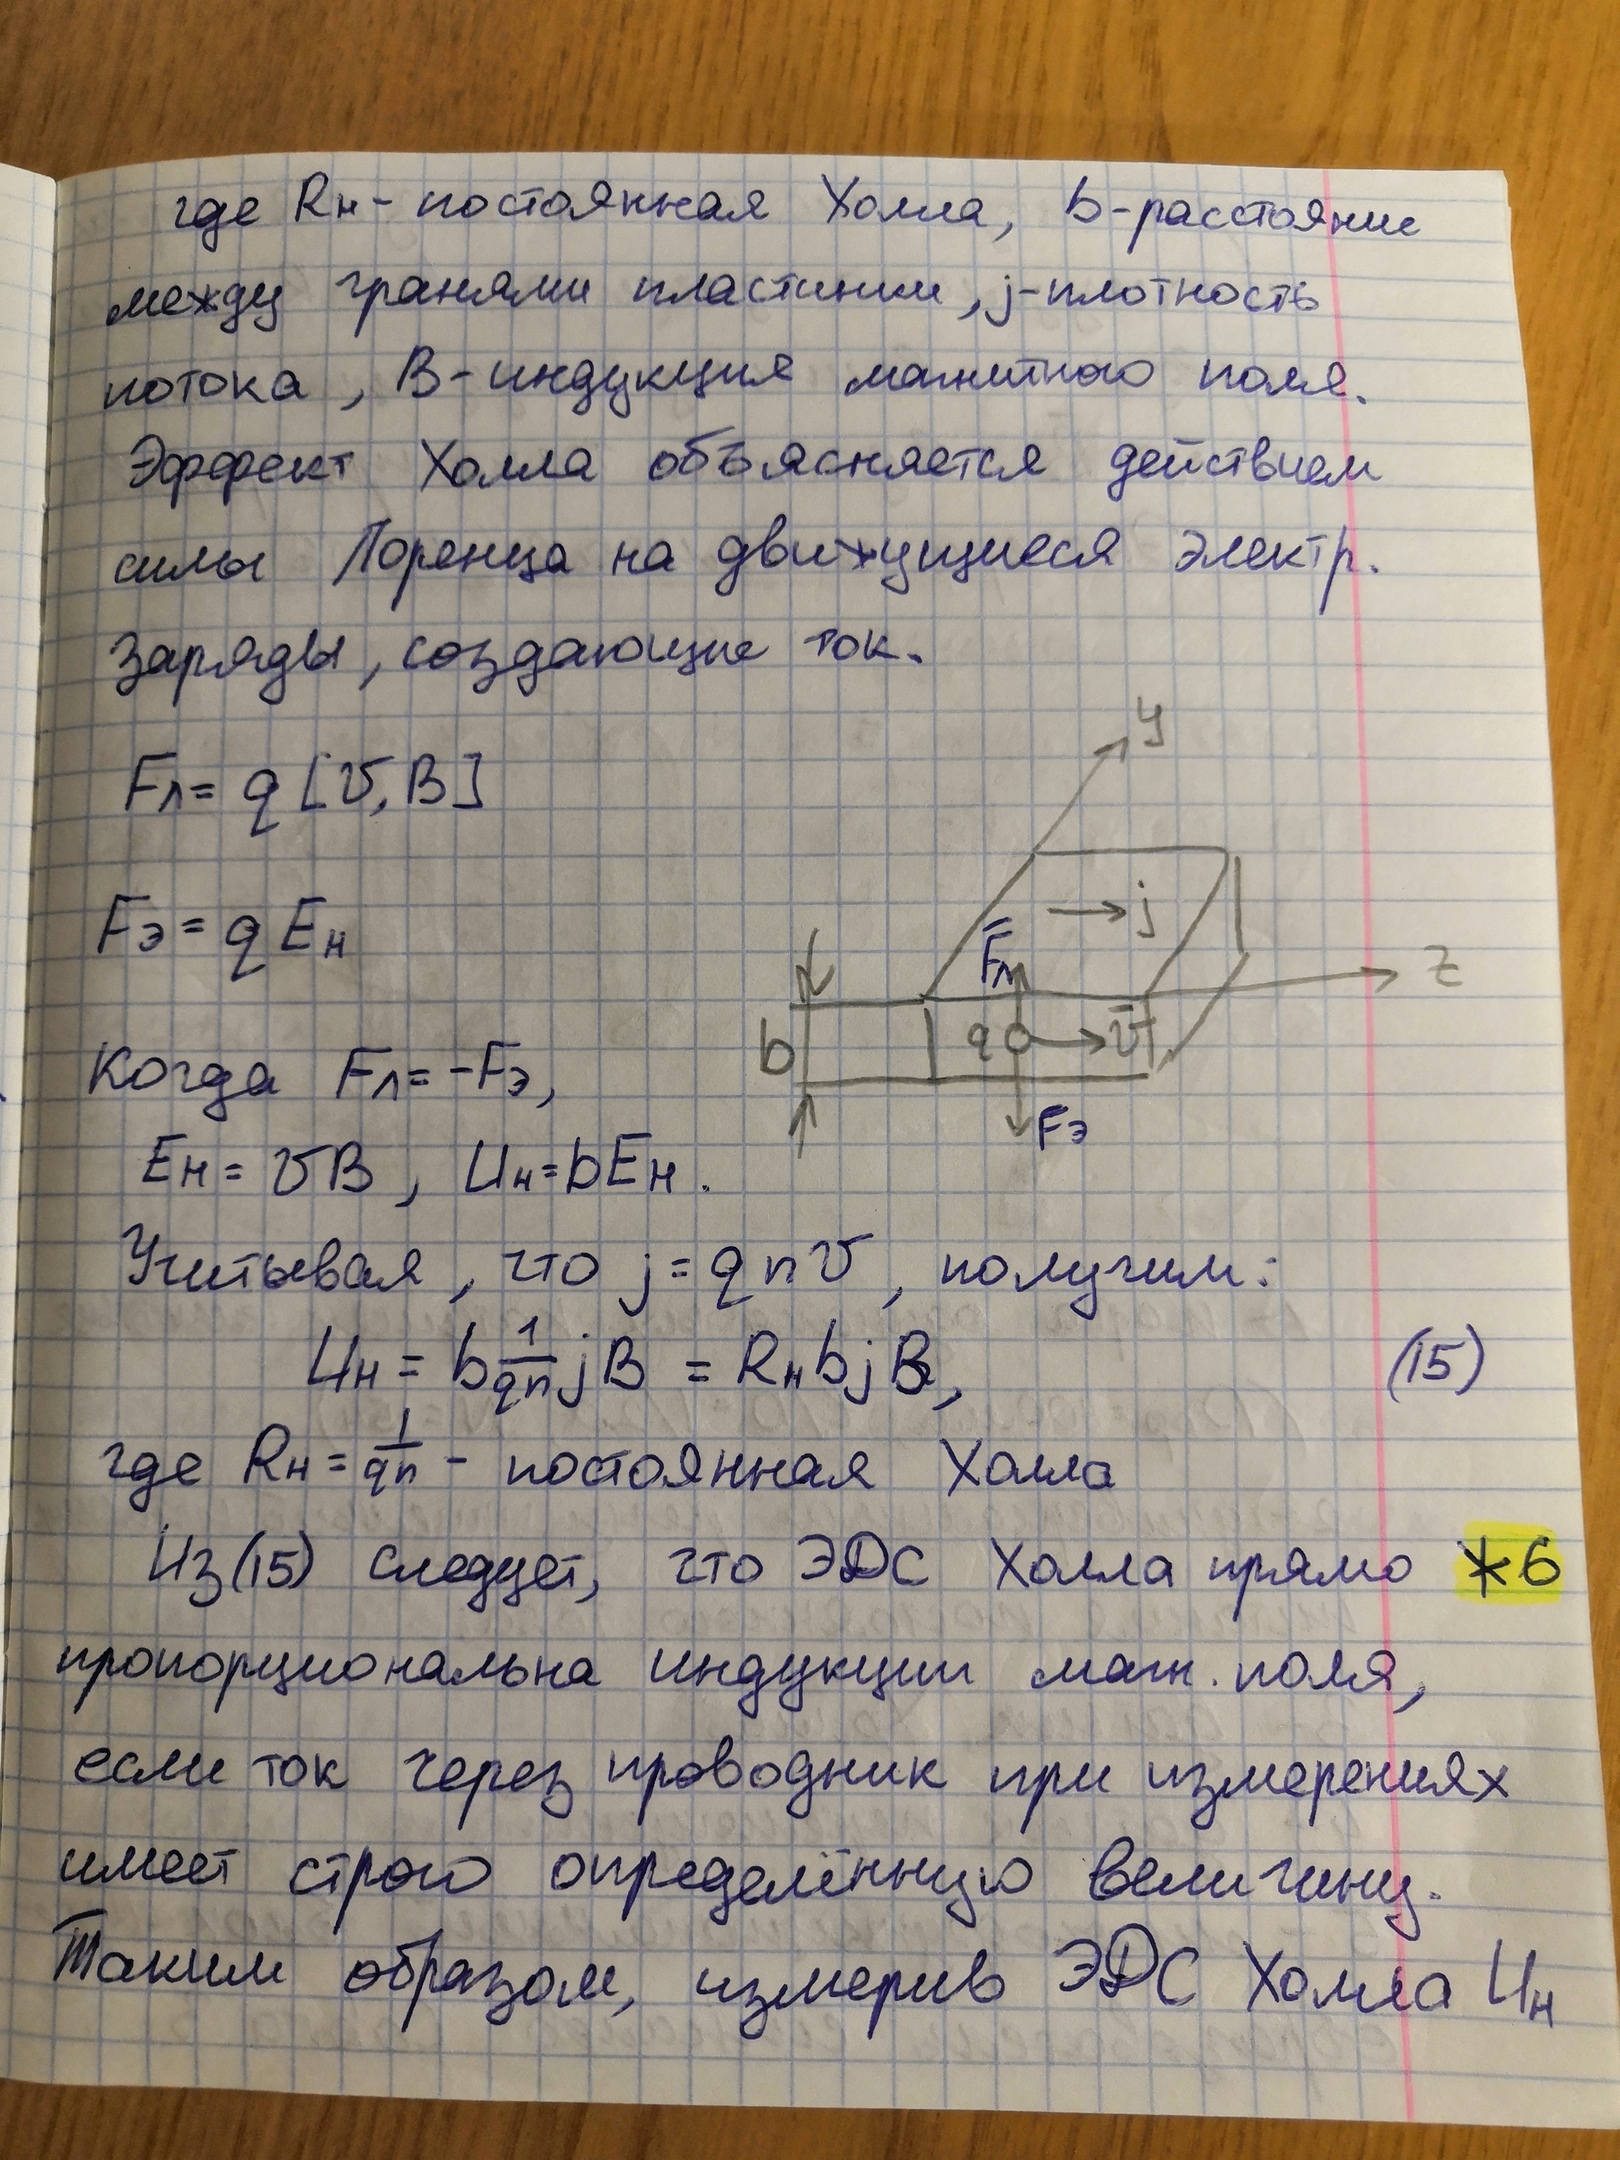 где Rн - постоянная Холла, b-расстояние
между гранями пластинки, j-плотность
потока, B-индукция магнитного поля.
Эффект Холла объясняется действием
силы Лоренца на движущиеся электр.
заряды, создающие ток.
y
Fл = q [v, B]
j
Fэ = q Eн
Fл
z
b
q
v
Когда Fл = -Fэ,
Fэ
Eн = vB, Uн = bEн.
Учитывая, что j = qnv, получим:
Uн = b 1/qn jB = Rн b j B, (15)
где Rн = 1/qn - постоянная Холла
Из (15) следует, что ЭДС Холла прямо *6
пропорциональна индукции магн. поля,
если ток через проводник при измерениях
имеет строго определённую величину.
Таким образом, измерив ЭДС Холла Uн